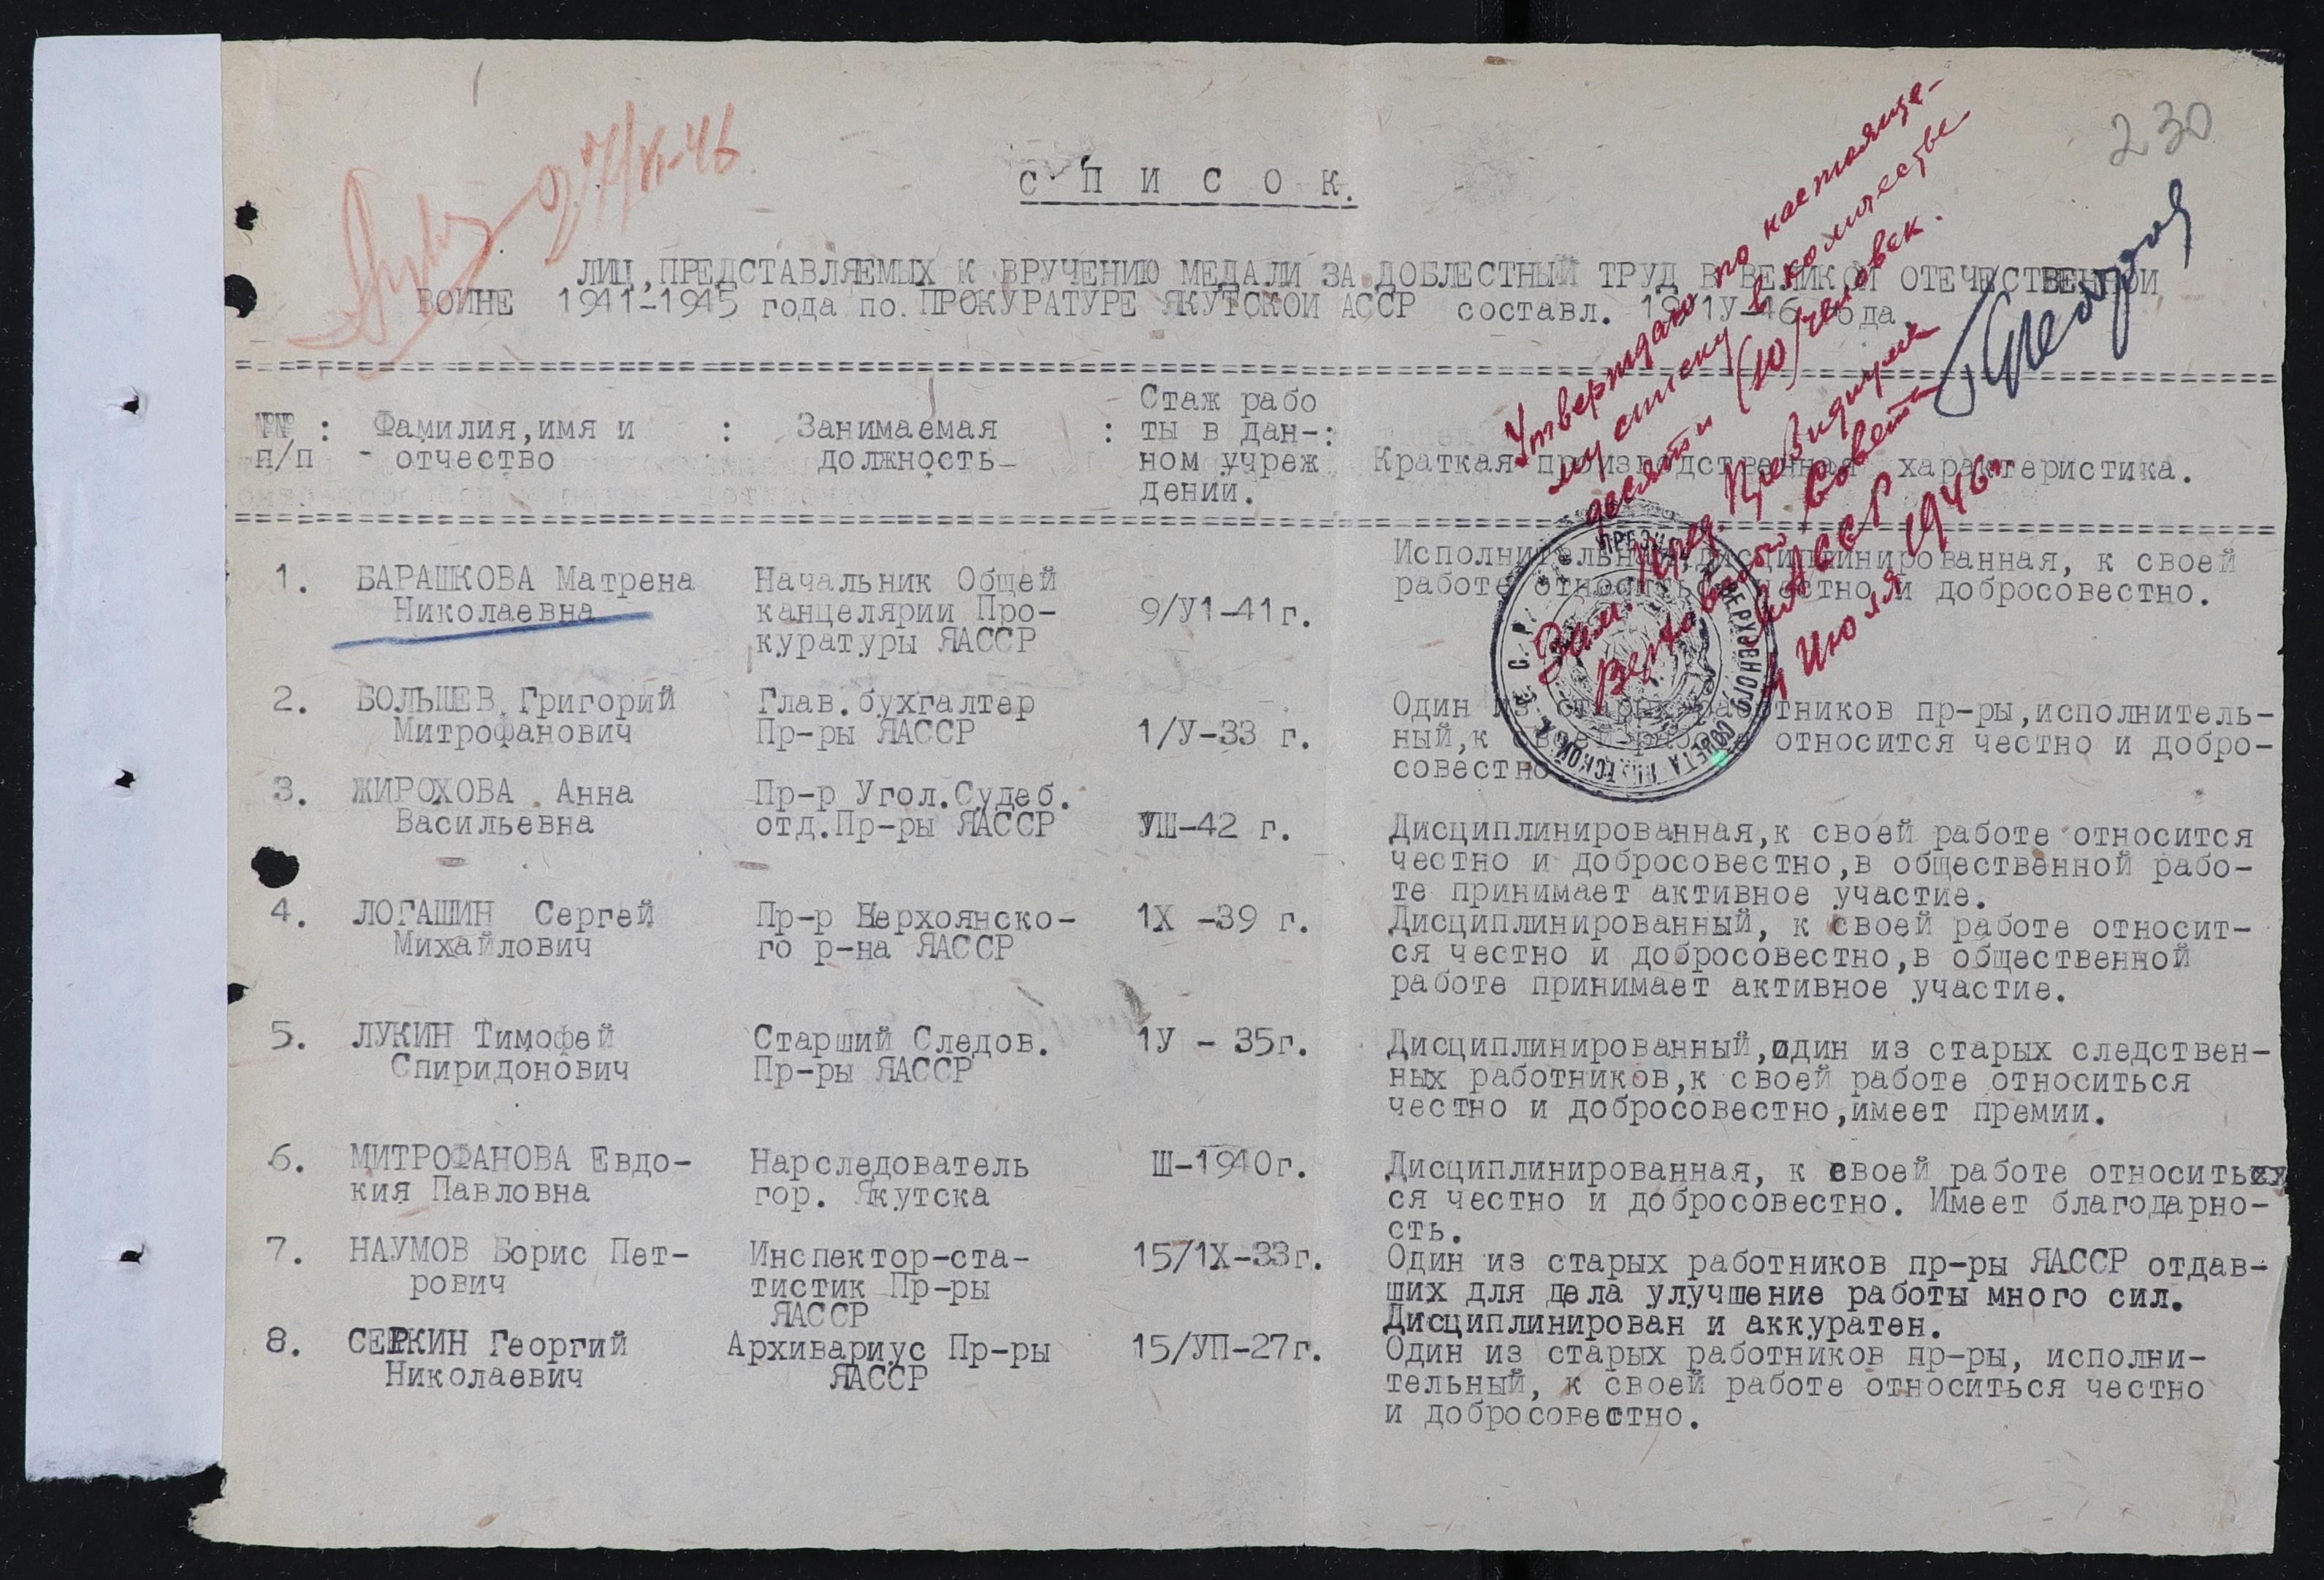 230
27/XI-46
С П И С О К.
ЛИЦ, ПРЕДСТАВЛЯЕМЫХ К ВРУЧЕНИЮ МЕДАЛИ ЗА ДОБЛЕСТНЫЙ ТРУД В ВЕЛИКОЙ ОТЕЧЕСТВЕННОЙ
ВОЙНЕ 1941-1945 года по. ПРОКУРАТУРЕ ЯКУТСКОЙ АССР составл. 1У-46 года
Утверждаю по настояще-
му списку в количестве
десяти (10) человек.
Зам. Пред. Президиума
Верховного Совета
ЯАССР
Июля 1946г.
№№ : Фамилия,имя и : Занимаемая : Стаж рабо
п/п - отчество должность- ты в дан-:
ном учреж
дении.
Краткая производственная характеристика.
1. БАРАШКОВА Матрена
Николаевна
Начальник Общей
канцелярии Про-
куратуры ЯАССР
9/У1-41г.
Исполнительная, дисциплинированная, к своей
работе относиться честно и добросовестно.
2. БОЛЬШЕВ Григорий
Митрофанович
Глав.бухгалтер
Пр-ры ЯАССР
1/У-33 г.
Один из старых работников пр-ры,исполнитель-
ный,к своей работе относится честно и добро-
совестно
3. ЖИРОХОВА Анна
Васильевна
Пр-р Угол.Судеб.
отд.Пр-ры ЯАССР
УШ-42 г.
Дисциплинированная,к своей работе относится
честно и добросовестно,в общественной рабо-
те принимает активное участие.
4. ЛОГАШИН Сергей
Михайлович
Пр-р Верхоянско-
го р-на ЯАССР
1Х -39 г.
Дисциплинированный, к своей работе относит-
ся честно и добросовестно,в общественной
работе принимает активное участие.
5. ЛУКИН Тимофей
Спиридонович
Старший Следов.
Пр-ры ЯАССР
1У - 35г.
Дисциплинированный,один из старых следствен-
ных работников,к своей работе относиться
честно и добросовестно,имеет премии.
6. МИТРОФАНОВА Евдо-
кия Павловна
Нарследователь
гор. Якутска
Ш-1940г.
Дисциплинированная, к своей работе относить
ся честно и добросовестно. Имеет благодарно-
сть.
7. НАУМОВ Борис Пет-
рович
Инспектор-ста-
тистик Пр-ры
ЯАССР
15/1Х-33г.
Один из старых работников пр-ры ЯАССР отдав-
ших для дела улучшение работы много сил.
Дисциплинирован и аккуратен.
8. СЕРКИН Георгий
Николаевич
Архивариус Пр-ры
ЯАССР
15/УП-27г.
Один из старых работников пр-ры, исполни-
тельный, к своей работе относиться честно
и добросовестно.